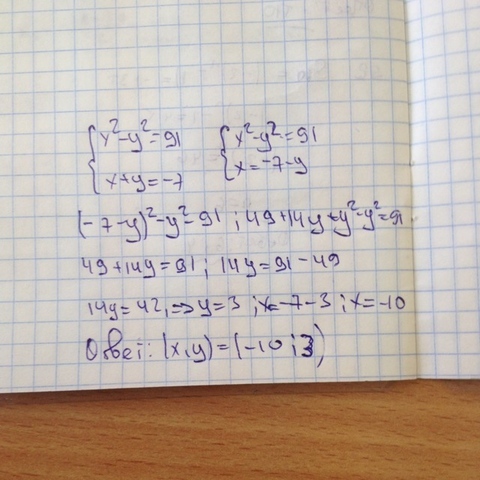 {x²-y²=91 {x²-y²=91
{x+y=-7 {x=-7-y
(-7-y)²-y²=91; 49+14y+y²-y²=91
49+14y=91; 14y=91-49
14y=42, => y=3; x=-7-3; x=-10
Ответ: (x,y)=(-10;3)